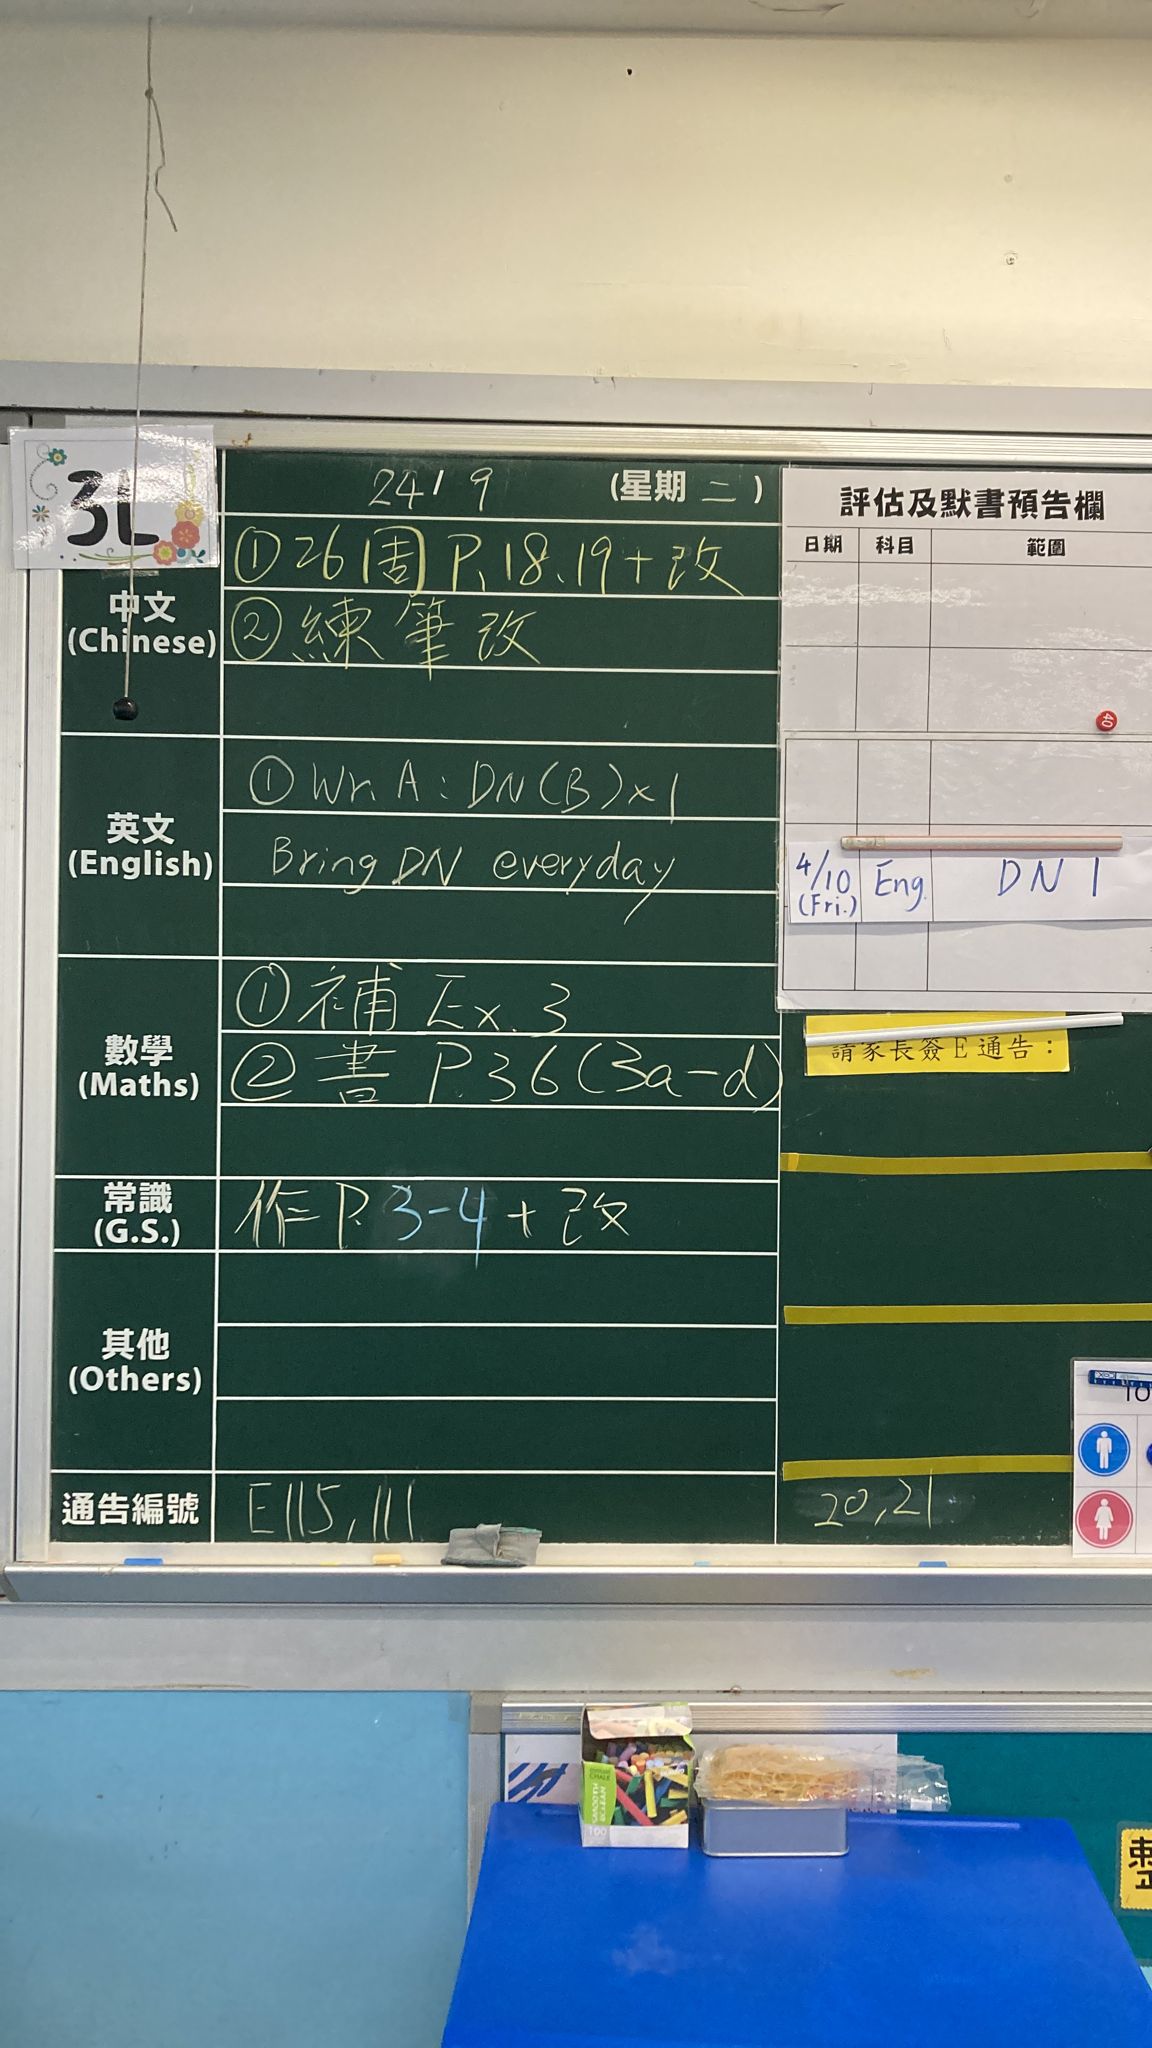 3L
24/9 (星期二)
中文
(Chinese)
①26周 P.18、19+改
②練筆改
英文
(English)
①Wr. A: DN(B)×1
Bring DN everyday
數學
(Maths)
①補 Ex. 3
②書 P.36(3a-d)
常識
(G.S.)
作 P. 3-4 + 改
其他
(Others)
通告編號
E115, 111
評估及默書預告欄
日期 科目 範圍
40
4/10
(Fri.)
Eng.
DN 1
請家長簽E通告：
20, 21
CHALK
100